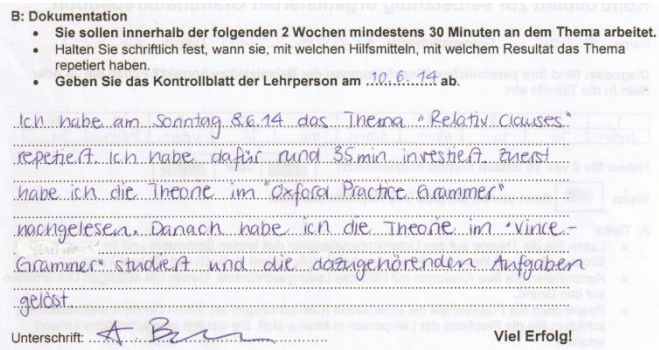 B: Dokumentation
• Sie sollen innerhalb der folgenden 2 Wochen mindestens 30 Minuten an dem Thema arbeitet.
• Halten Sie schriftlich fest, wann sie, mit welchen Hilfsmitteln, mit welchem Resultat das Thema
repetiert haben.
• Geben Sie das Kontrollblatt der Lehrperson am 10.6.14 ab.
Ich habe am Sonntag 8.6.14 das Thema "Relativ Clauses"
repetiert. Ich habe dafür rund 35min investiert. Zuerst
habe ich die Theorie im "Oxford Practice Grammer"
nachgelesen. Danach habe ich die Theorie im "Vince-
Grammer" studiert und die dazugehörenden Aufgaben
gelöst.
Unterschrift: A
Viel Erfolg!